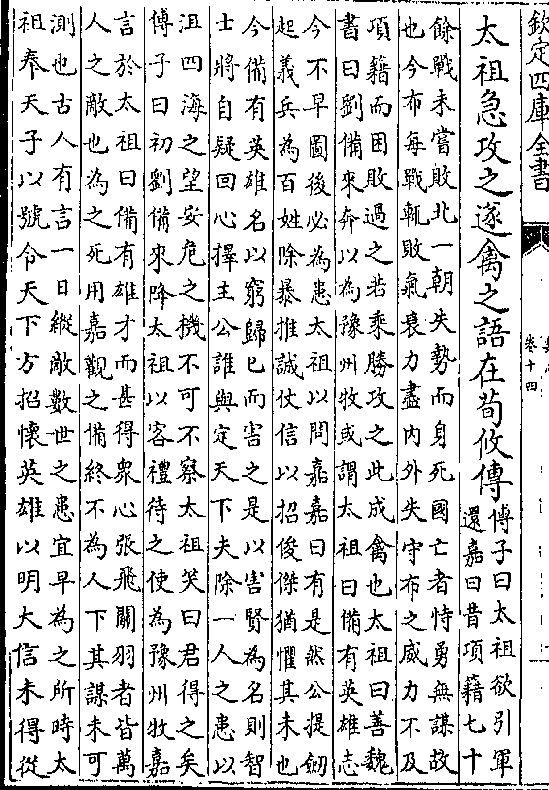 欽定四庫全書
卷十四
太祖急攻之遂禽之語在荀攸傳
傅子曰太祖欲引軍
還嘉曰昔項籍七十
餘戰未嘗敗北一朝失勢而身死國亡者恃勇無謀故
也今布每戰輒敗氣衰力盡內外失守布之威力不及
項籍而困敗過之若乘勝攻之此成禽也太祖曰善魏
書曰劉備來奔以為豫州牧或謂太祖曰備有英雄志
今不早圖後必為患太祖以問嘉嘉曰有是然公提劒
起義兵為百姓除暴推誠仗信以招俊傑猶懼其未也
今備有英雄名以窮歸已而害之是以害賢為名則智
士將自疑回心擇主公誰與定天下夫除一人之患以
沮四海之望安危之機不可不察太祖笑曰君得之矣
傅子曰初劉備來降太祖以客禮待之使為豫州牧嘉
言於太祖曰備有雄才而甚得衆心張飛關羽者皆萬
人之敵也為之死用嘉觀之備終不為人下其謀未可
測也古人有言一日縱敵數世之患宜早為之所時太
祖奉天子以號令天下方招懷英雄以明大信未得從